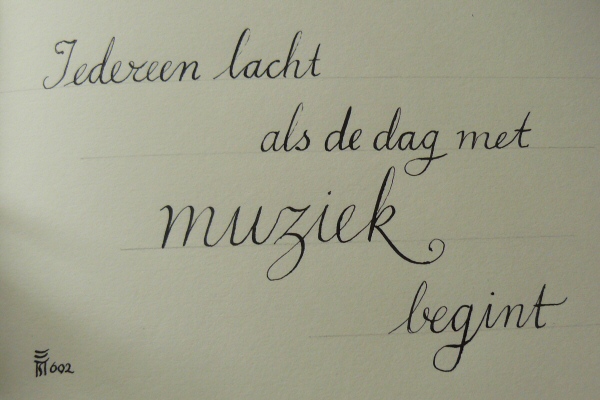 Iedereen lacht
als de dag met
muziek
begint
602